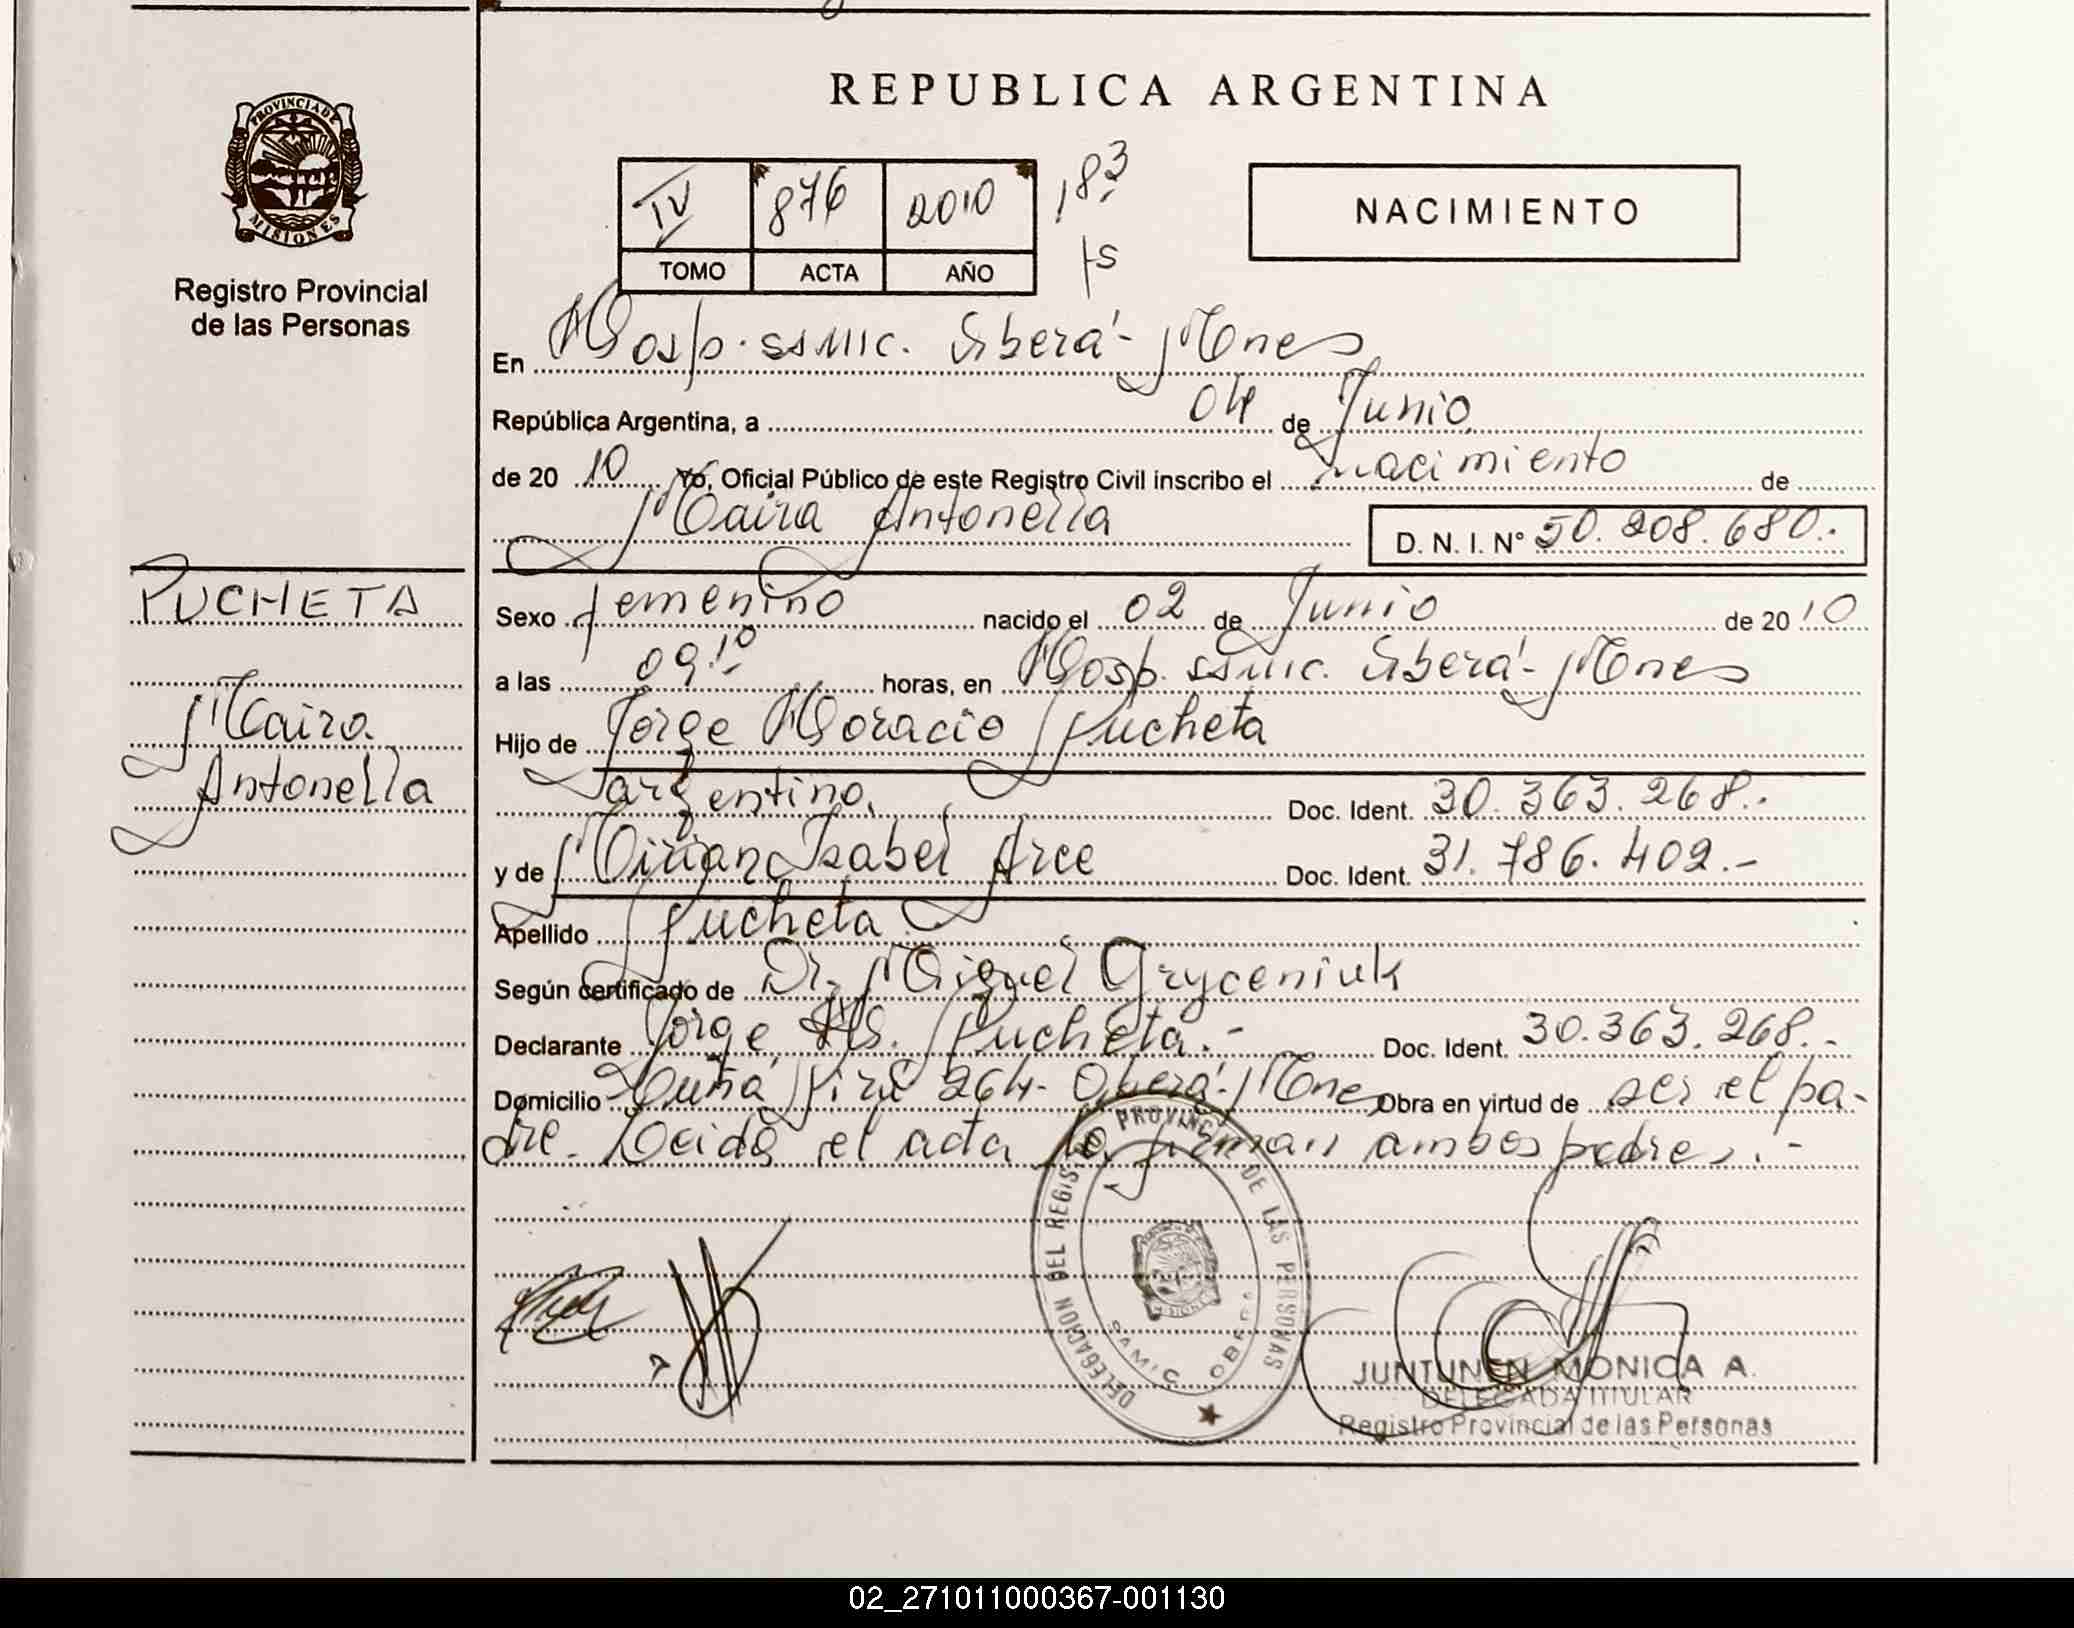 REPUBLICA ARGENTINA
PROVINCIA DE
MISIONES
Registro Provincial
de las Personas
IV 876 2010 183
TOMO ACTA AÑO fs
NACIMIENTO
En Hosp. ssmic. Oberá - Mnes
República Argentina, a 04 de Junio
de 20 10 Yo, Oficial Público de este Registro Civil inscribo el nacimiento de
Maira Antonella D. N. I. N° 50.208.680.-
PUCHETA
Maira
Antonella
Sexo femenino nacido el 02 de Junio de 20 10
a las 09.10 horas, en Hosp. ssmic. Oberá - Mnes
Hijo de Jorge Horacio Pucheta
argentino. Doc. Ident. 30.363.268.-
y de Mirian Isabel Arce Doc. Ident. 31.786.402.-
Apellido Pucheta
Según certificado de Dr. Miguel Gryceniuk
Declarante Jorge H. Pucheta.- Doc. Ident. 30.363.268.-
Domicilio Cuñá Pirú 264 - Oberá - Mnes Obra en virtud de ser el pa-
dre. Leida el acta la firman ambos padres.-
DELEGACION DEL REGISTRO PROVINCIAL DE LAS PERSONAS
MISIONES
SAMIC OBERA
JUNTUNEN MONICA A.
DELEGADA TITULAR
Registro Provincial de las Personas
02_271011000367-001130